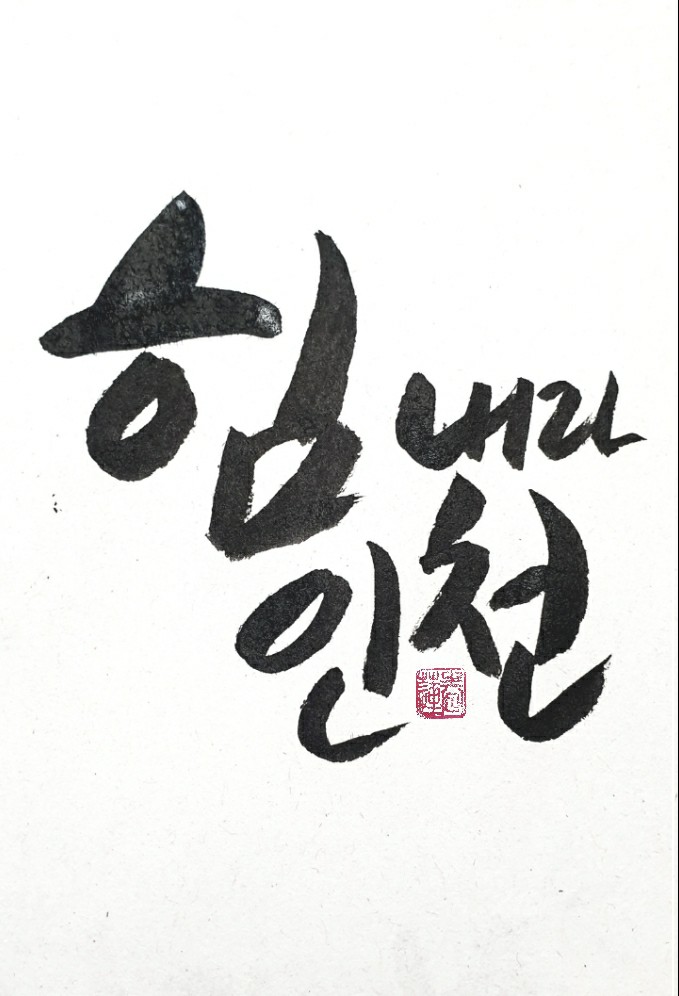 힘내라
인천